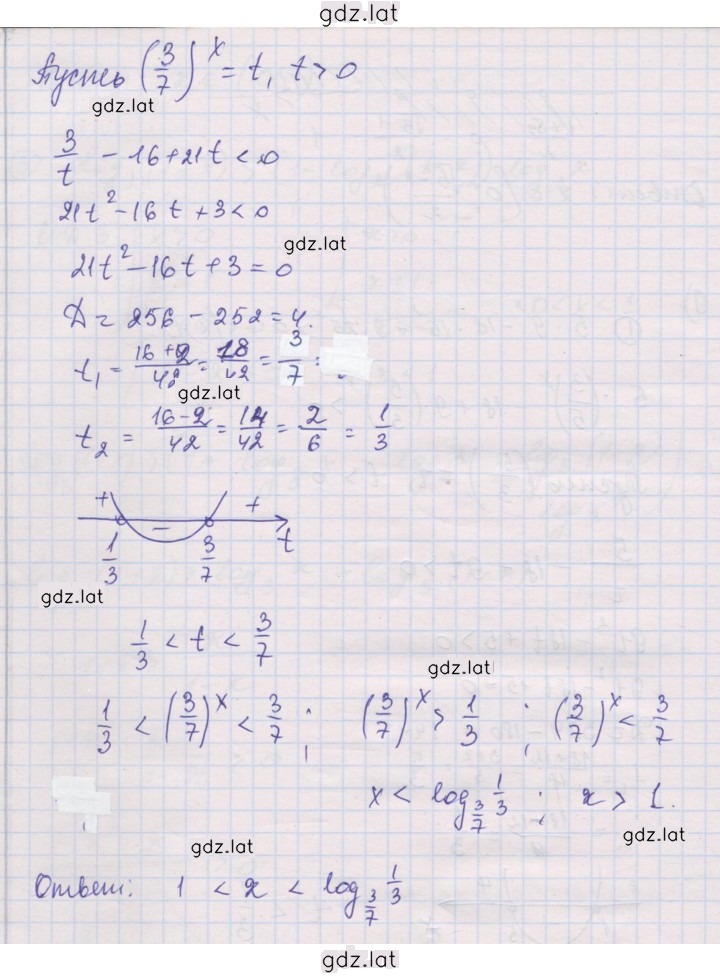 gdz.lat
Пусть (3/7)^x = t, t > 0
gdz.lat
3/t - 16 + 21t < 0
21t^2 - 16t + 3 < 0
gdz.lat
21t^2 - 16t + 3 = 0
D = 256 - 252 = 4.
t_1 = (16+2)/42 = 18/42 = 3/7
gdz.lat
t_2 = (16-2)/42 = 14/42 = 2/6 = 1/3
+ - +
1/3 3/7 t
gdz.lat
1/3 < t < 3/7
gdz.lat
1/3 < (3/7)^x < 3/7 ; (3/7)^x > 1/3 ; (3/7)^x < 3/7
x < log_{3/7} 1/3 ; x > 1.
gdz.lat
gdz.lat
Ответ: 1 < x < log_{3/7} 1/3
gdz.lat